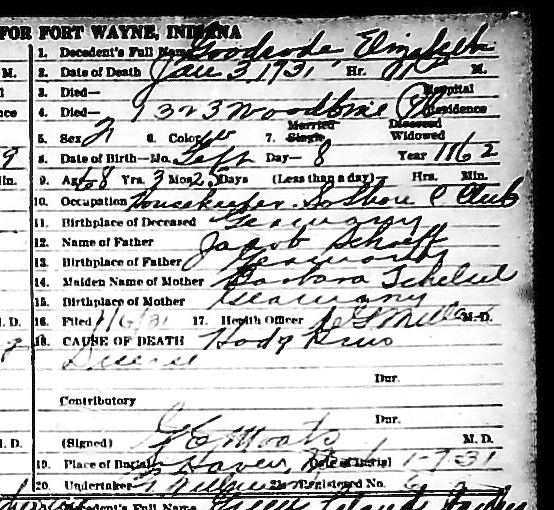 FOR FORT WAYNE, INDIANA
1. Decedent's Full Name Goodrode Elizabeth
M. 2. Date of Death Jan 3, 1931 Hr. M.
3. Died— Hospital
4. Died— 1323 Woodbine Residence
5. Sex 6. Color 7. Married Single Divorced Widowed
8. Date of Birth—Mo. Sept Day— 8 Year 1862
9. Age 68 Yrs. 3 Mos. 25 Days (Less than a day)— Hrs. Min.
10. Occupation Housekeeper So Shore C Club
11. Birthplace of Deceased Germany
12. Name of Father Jacob Schoeff
13. Birthplace of Father Germany
14. Maiden Name of Mother Barbara
15. Birthplace of Mother Germany
16. Filed 1/6/31 17. Health Officer M. D.
18. CAUSE OF DEATH Hodgkins
Disease
Dur.
Contributory
Dur.
(Signed) G E Moats M. D.
19. Place of Burial Haven, Date of Burial 1-7-31
20. Undertaker Registered No.
Decedent's Full Name